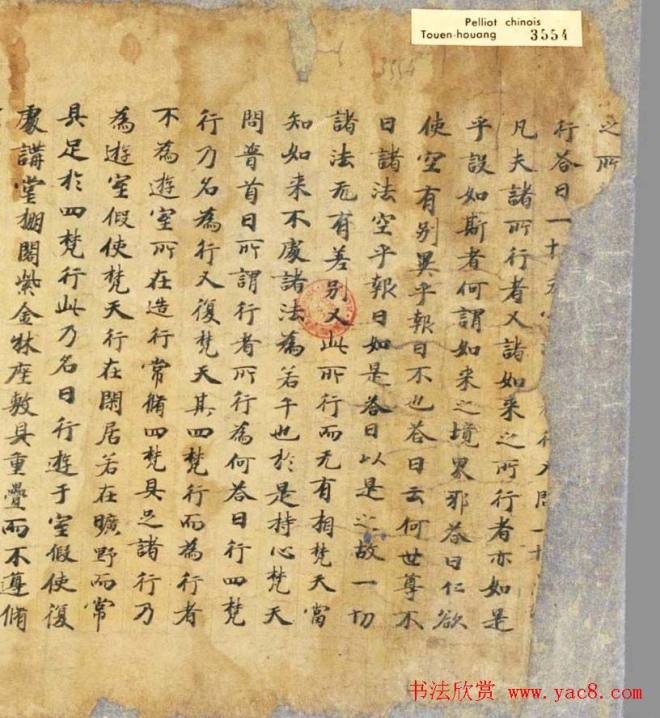 Pelliot chinois
Touen-houang 3554
3554
之所
行答曰一
凡夫諸所行者又諸如来之所行者亦如是
乎設如斯者何謂如来之境界邪答曰仁欲
使空有別異乎報曰不也答曰云何世尊不
曰諸法空乎報曰如是答曰以是之故一切
諸法无有差別又此所行而无有相梵天當
知如来不處諸法為若干也於是持心梵天
問普首曰所謂行者所行為何答曰行四梵
行乃名為行又復梵天其四梵行而為行者
不為遊室所在造行常脩四梵具足諸行乃
為遊室假使梵天行在閑居若在曠野而常
具足於四梵行此乃名曰行遊于室假使復
處講堂棚閣紫金牀座敷具重疊而不遵脩
书法欣赏 www.yac8.com